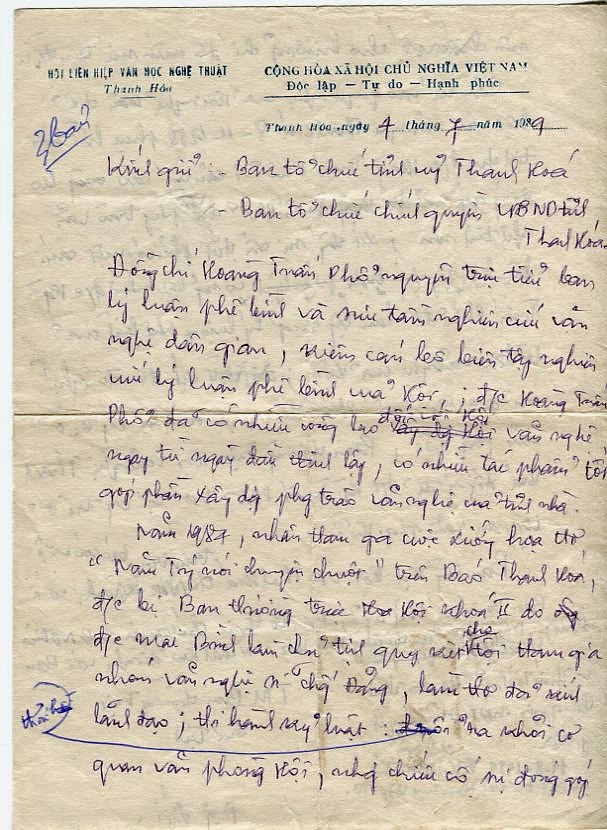 HỘI LIÊN HIỆP VĂN HỌC NGHỆ THUẬT
Thanh Hóa
CỘNG HÒA XÃ HỘI CHỦ NGHĨA VIỆT NAM
Độc lập — Tự do — Hạnh phúc
Thanh Hóa, ngày 4 tháng 7 năm 1989
Kính gửi : - Ban tổ chức tỉnh uỷ Thanh Hoá
- Ban tổ chức chính quyền UBND tỉnh
Thanh Hóa
Đồng chí Hoàng Tuấn Phổ nguyên tiểu ban
lý luận phê bình và sưu tầm nghiên cứu văn
nghệ dân gian, kiêm cán bộ biên tập nghiên
cứu lý luận phê bình của Hội, ; đ/c Hoàng Tuấn
Phổ đã có nhiều công lao đối với Hội văn nghệ
ngay từ ngày đầu thành lập, có nhiều tác phẩm tốt
góp phần xây dự phg trào văn nghệ của tỉnh nhà.
Năm 1987, nhân tham gia cuộc xướng họa thơ
"Năm Tý nói chuyện chuột" trên Báo Thanh Hoá,
đ/c bị Ban thường trực Hội khoá II do
đ/c Mai Bình làm chủ tịch quy kết cho tội tham gia
nhóm văn nghệ sĩ chống Đảng, làm thơ đả kích
lãnh đạo ; thi hành kỷ luật : ra khỏi cơ
quan văn phòng Hội, chiếu cố sự đóng góp